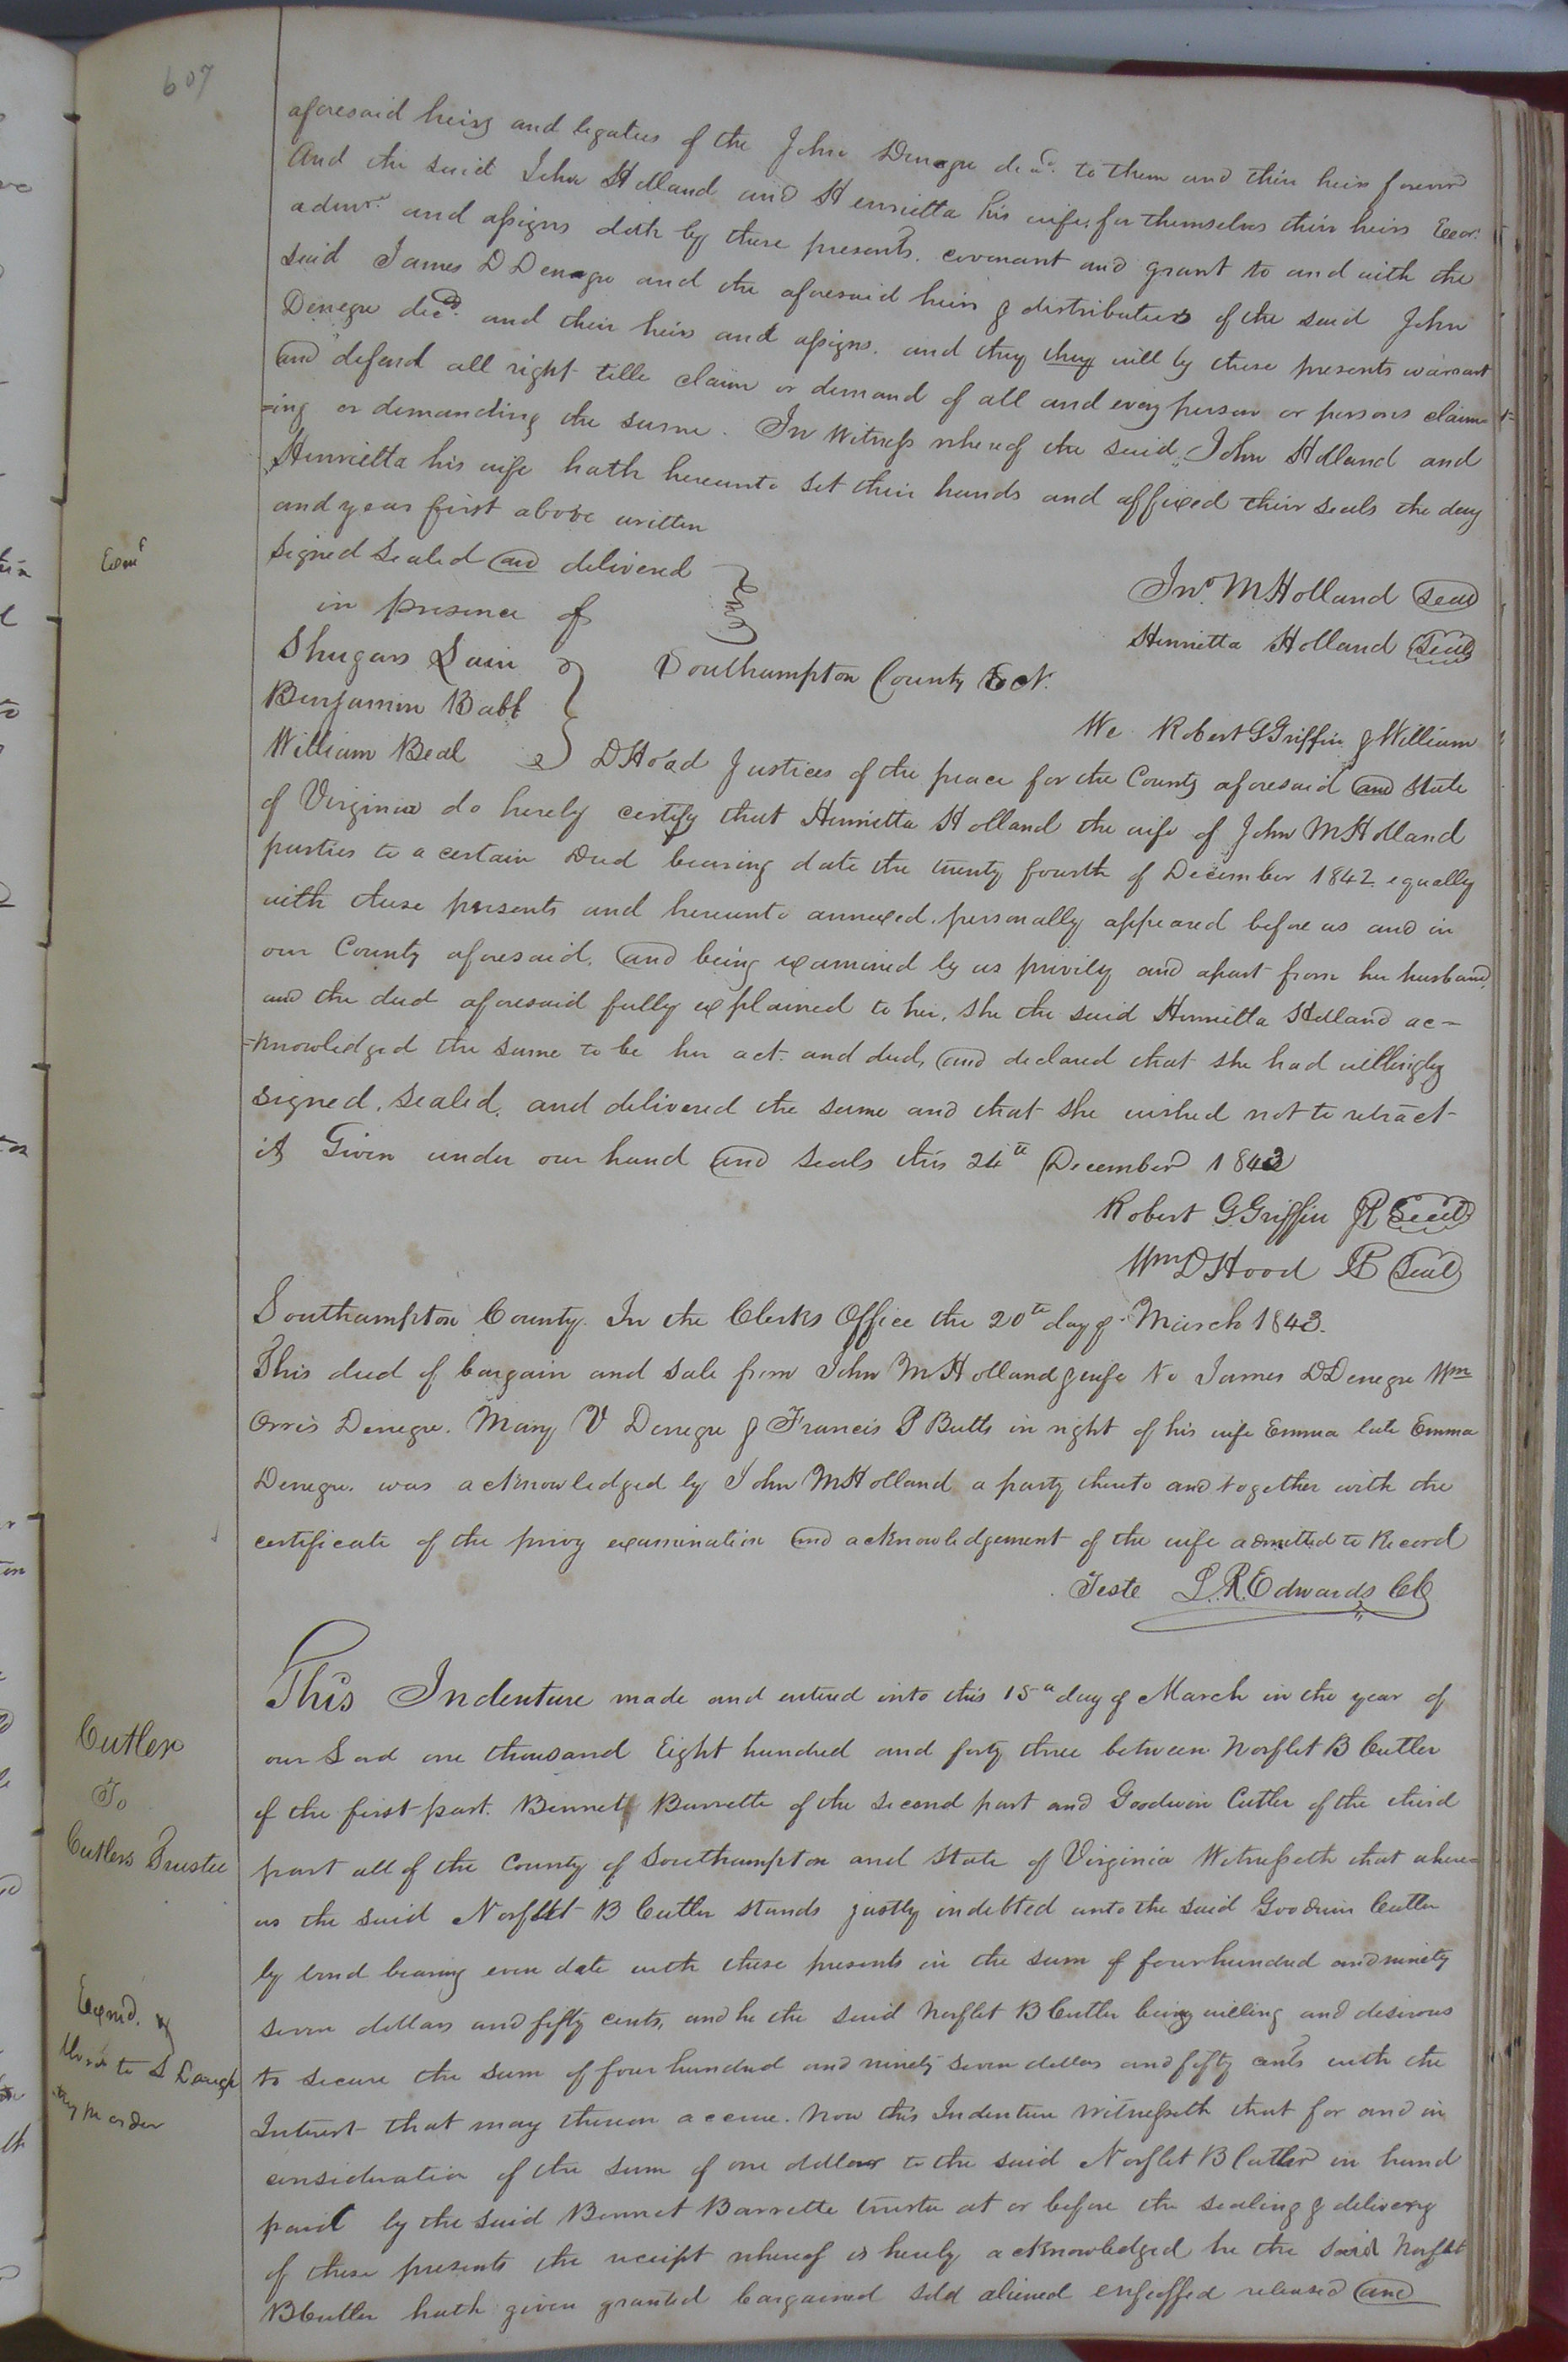 607
aforesaid heirs and legatees of the John Denegre decd. to them and their heirs forever
And the said John Holland and Henrietta his wife, for themselves their heirs Exor.
admr. and assigns doth by these presents. covenant and grant to and with the
said James D Denegre and the aforesaid heirs & distributees of the said John
Denegre decd. and their heirs and assigns. and they they will by these presents warrant
and defend all right title claim or demand of all and every person or persons claim=
=ing or demanding the same. In Witness whereof the said John Holland and
Henrietta his wife hath hereunto set their hands and affixed their seals the day
and year first above written
signed sealed and delivered
Jno. M Holland seal
in presence of
Henrietta Holland Seal
Exmd
Shugars Lain
Southampton County Sct.
Benjamin Babb
We Robert G Griffin & William
William Beal
D Hood Justices of the peace for the County aforesaid and State
of Virginia do hereby certify that Henrietta Holland the wife of John M Holland
parties to a certain Deed bearing date the twenty fourth of December 1842 equally
with these presents and hereunto annexed. personally appeared before us and in
our County aforesaid. and being examined by us privily and apart from her husband,
and the deed aforesaid fully explained to her, she the said Henrietta Holland ac=
=knowledged the same to be her act. and deed, and declared that she had willingly
signed. sealed. and delivered the same and that she wished not to retract
it Given under our hand and seals this 24th December 1842
Robert G Griffin JP Seal
Wm D Hood JP Seal
Southampton County. In the Clerks Office the 20th day of March 1843.
This deed of bargain and sale from John M Holland & wife to James D Denegre Wm
Orris Denegre. Mary V Denegre & Francis P Butts in right of his wife Emma late Emma
Denegre. was acknowledged by John M Holland a party thereto and together with the
certificate of the privy examination and acknowledgement of the wife admitted to Record
Teste L. R. Edwards CC
Cutler
To
Cutlers Trustee
This Indenture made and entered into this 15th day of March in the year of
our Lord one thousand Eight hundred and forty three between Norflet B Cutler
of the first part. Bennet Barrette of the second part and Goodwin Cutler of the third
part all of the County of Southampton and State of Virginia Witnesseth that where=
as the said Norflet B Cutler stands justly indebted unto the said Goodwin Cutler
by bond bearing even date with these presents in the sum of four hundred and ninety
Exmd. &
seven dollars and fifty cents, and he the said Norflet B Cutler being willing and desirous
to secure the sum of four hundred and ninety seven dollars and fifty cents with the
order
Interest that may thereon accrue. Now this Indenture Witnesseth that for and in
consideration of the sum of one dollar to the said Norflet B Cutler in hand
paid by the said Bennet Barrette trustee at or before the sealing & delivery
of these presents the receipt whereof is hereby acknowledged he the said Norflet
B Cutler hath given granted bargained sold aliened enfeoffed released and